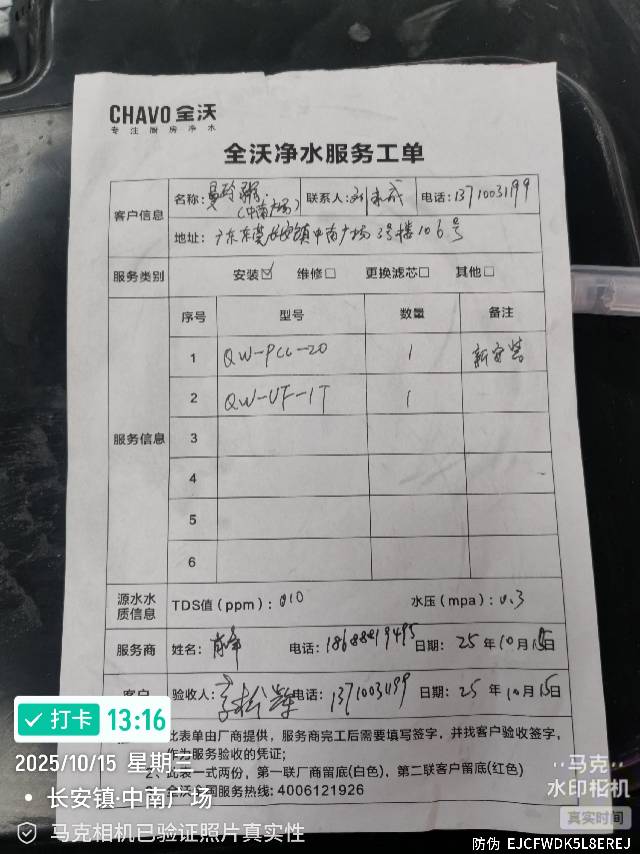 CHAVO 全沃
专注厨房净水
全沃净水服务工单
客户信息 名称: (中南广场) 联系人: 电话: 13710031199
地址: 广东东莞长安镇中南广场3号楼106号
服务类别 安装☑ 维修□ 更换滤芯□ 其他□
服务信息 序号 型号 数量 备注
1 QW-PCC-20 1 新安装
2 QW-UF-1T 1
3
4
5
6
源水水质信息 TDS值(ppm): 010 水压(mpa): 0.3
服务商 姓名: 电话: 18688819495 日期: 25年10月15日
客户 验收人: 李松辉 电话: 13710031199 日期: 25年10月15日
此表单由厂商提供,服务商完工后需要填写签字,并找客户验收签字,
作为服务验收的凭证;
2、此表一式两份,第一联厂商留底(白色),第二联客户留底(红色)
服务热线: 4006121926
打卡 13:16
2025/10/15 星期三
长安镇·中南广场
马克相机已验证照片真实性
马克
水印相机
真实时间
防伪 EJCFWDK5L8EREJ